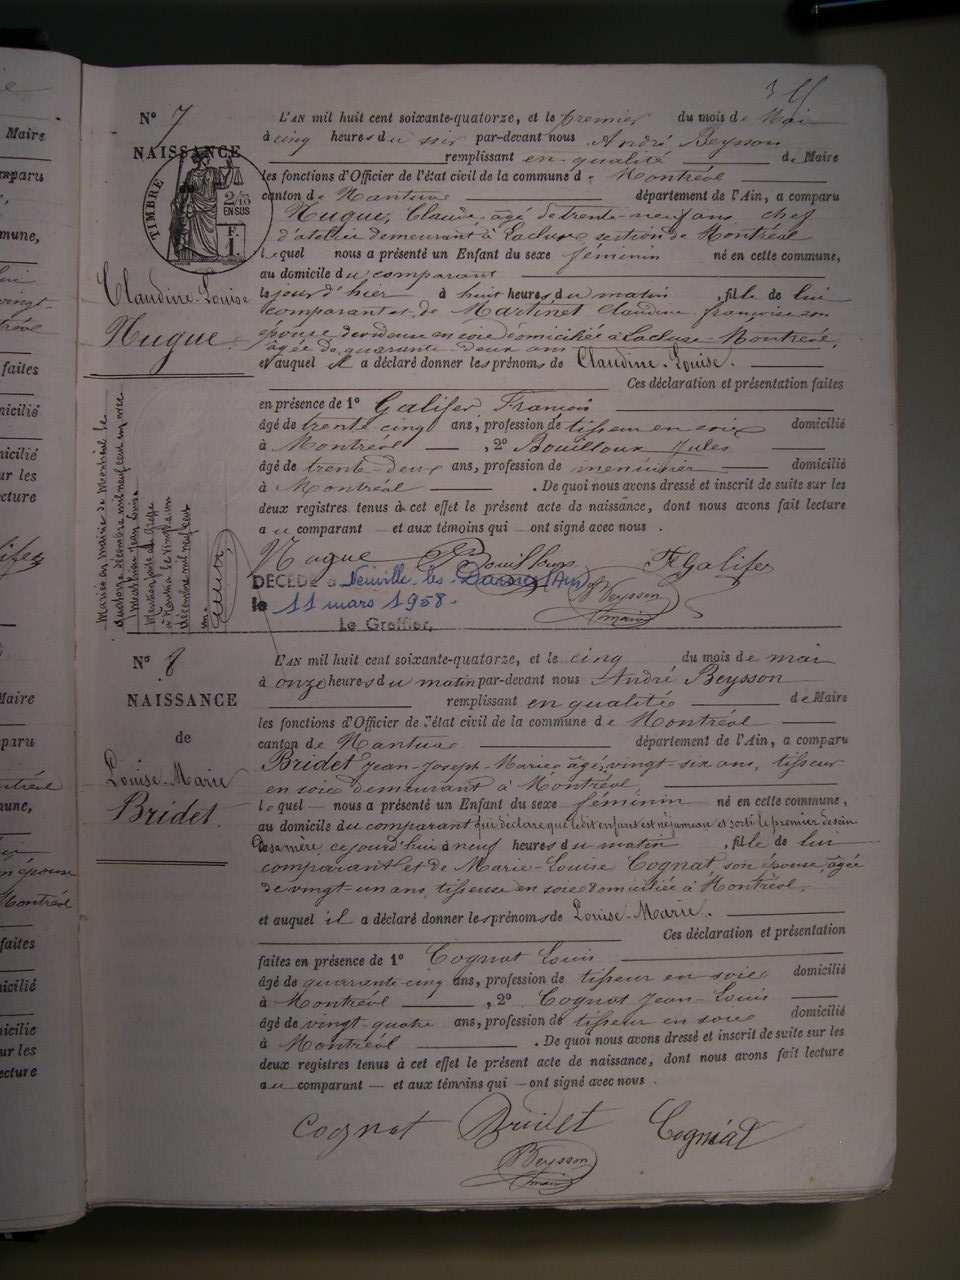 N° 7
NAISSANCE
TIMBRE
2/10
EN SUS
F.
1.
Claudine-Louise
Hugue.
L'AN mil huit cent soixante-quatorze, et le premier du mois de Mai
à cinq heures du soir par-devant nous André Beysson
remplissant en qualité de Maire
les fonctions d'Officier de l'état civil de la commune de Montréal
canton de Nantua département de l'Ain, a comparu
Hugue, Claude âgé de trente-neuf ans, chef
d'atelier demeurant à Lacluse section de Montréal
lequel nous a présenté un Enfant du sexe féminin né en cette commune,
au domicile du comparant
le jour d'hier à huit heures du matin, fille de lui
comparant et de Martinet Claudine françoise son
épouse dévideuse en soie domiciliée à Lacluse-Montréal,
âgée de quarante-deux ans
et auquel il a déclaré donner les prénoms de Claudine-Louise.
Ces déclaration et présentation faites
en présence de 1° Galifer, François
âgé de trente cinq ans, profession de tisseur en soie domicilié
à Montréal, 2° Bouilloux Jules
âgé de trente-deux ans, profession de menuisier domicilié
à Montréal. De quoi nous avons dressé et inscrit de suite sur les
deux registres tenus à cet effet le présent acte de naissance, dont nous avons fait lecture
au comparant et aux témoins qui ont signé avec nous.
Hugue Bouilloux F Galifer
Beysson
maire
Mariée en mairie de Montréal le
quatorze décembre mil neuf cent
Mention faite au Greffe
à Nantua le vingt
décembre mil neuf cent
DÉCÉDÉ à Neuville-les-Dames (Ain)
le 11 mars 1958.
Le Greffier,
N° 8
NAISSANCE
de
Louise-Marie
Bridet.
L'AN mil huit cent soixante-quatorze, et le cinq du mois de mai
à onze heures du matin par-devant nous André Beysson
remplissant en qualité de Maire
les fonctions d'Officier de l'état civil de la commune de Montréal
canton de Nantua département de l'Ain, a comparu
Bridet Jean-Joseph-Marie âgé vingt-six ans, tisseur
en soie demeurant à Montréal,
lequel nous a présenté un Enfant du sexe féminin né en cette commune,
au domicile du comparant qui déclare que ledit enfant est né jumeau et sorti le premier du sein
de sa mère, ce jourd'hui à neuf heures du matin, fille de lui
comparant et de Marie-Louise Cognat, son épouse, âgée
de vingt-un ans, tisseuse en soie domiciliée à Montréal,
et auquel il a déclaré donner les prénoms de Louise-Marie.
Ces déclaration et présentation
faites en présence de 1° Cognat Louis
âgé de quarante-cinq ans, profession de tisseur en soie domicilié
à Montréal, 2° Cognat Jean-Louis
âgé de vingt-quatre ans, profession de tisseur en soie domicilié
à Montréal. De quoi nous avons dressé et inscrit de suite sur les
deux registres tenus à cet effet le présent acte de naissance, dont nous avons fait lecture
au comparant et aux témoins qui ont signé avec nous.
Cognat Bridet Cogniat
Beysson
maire